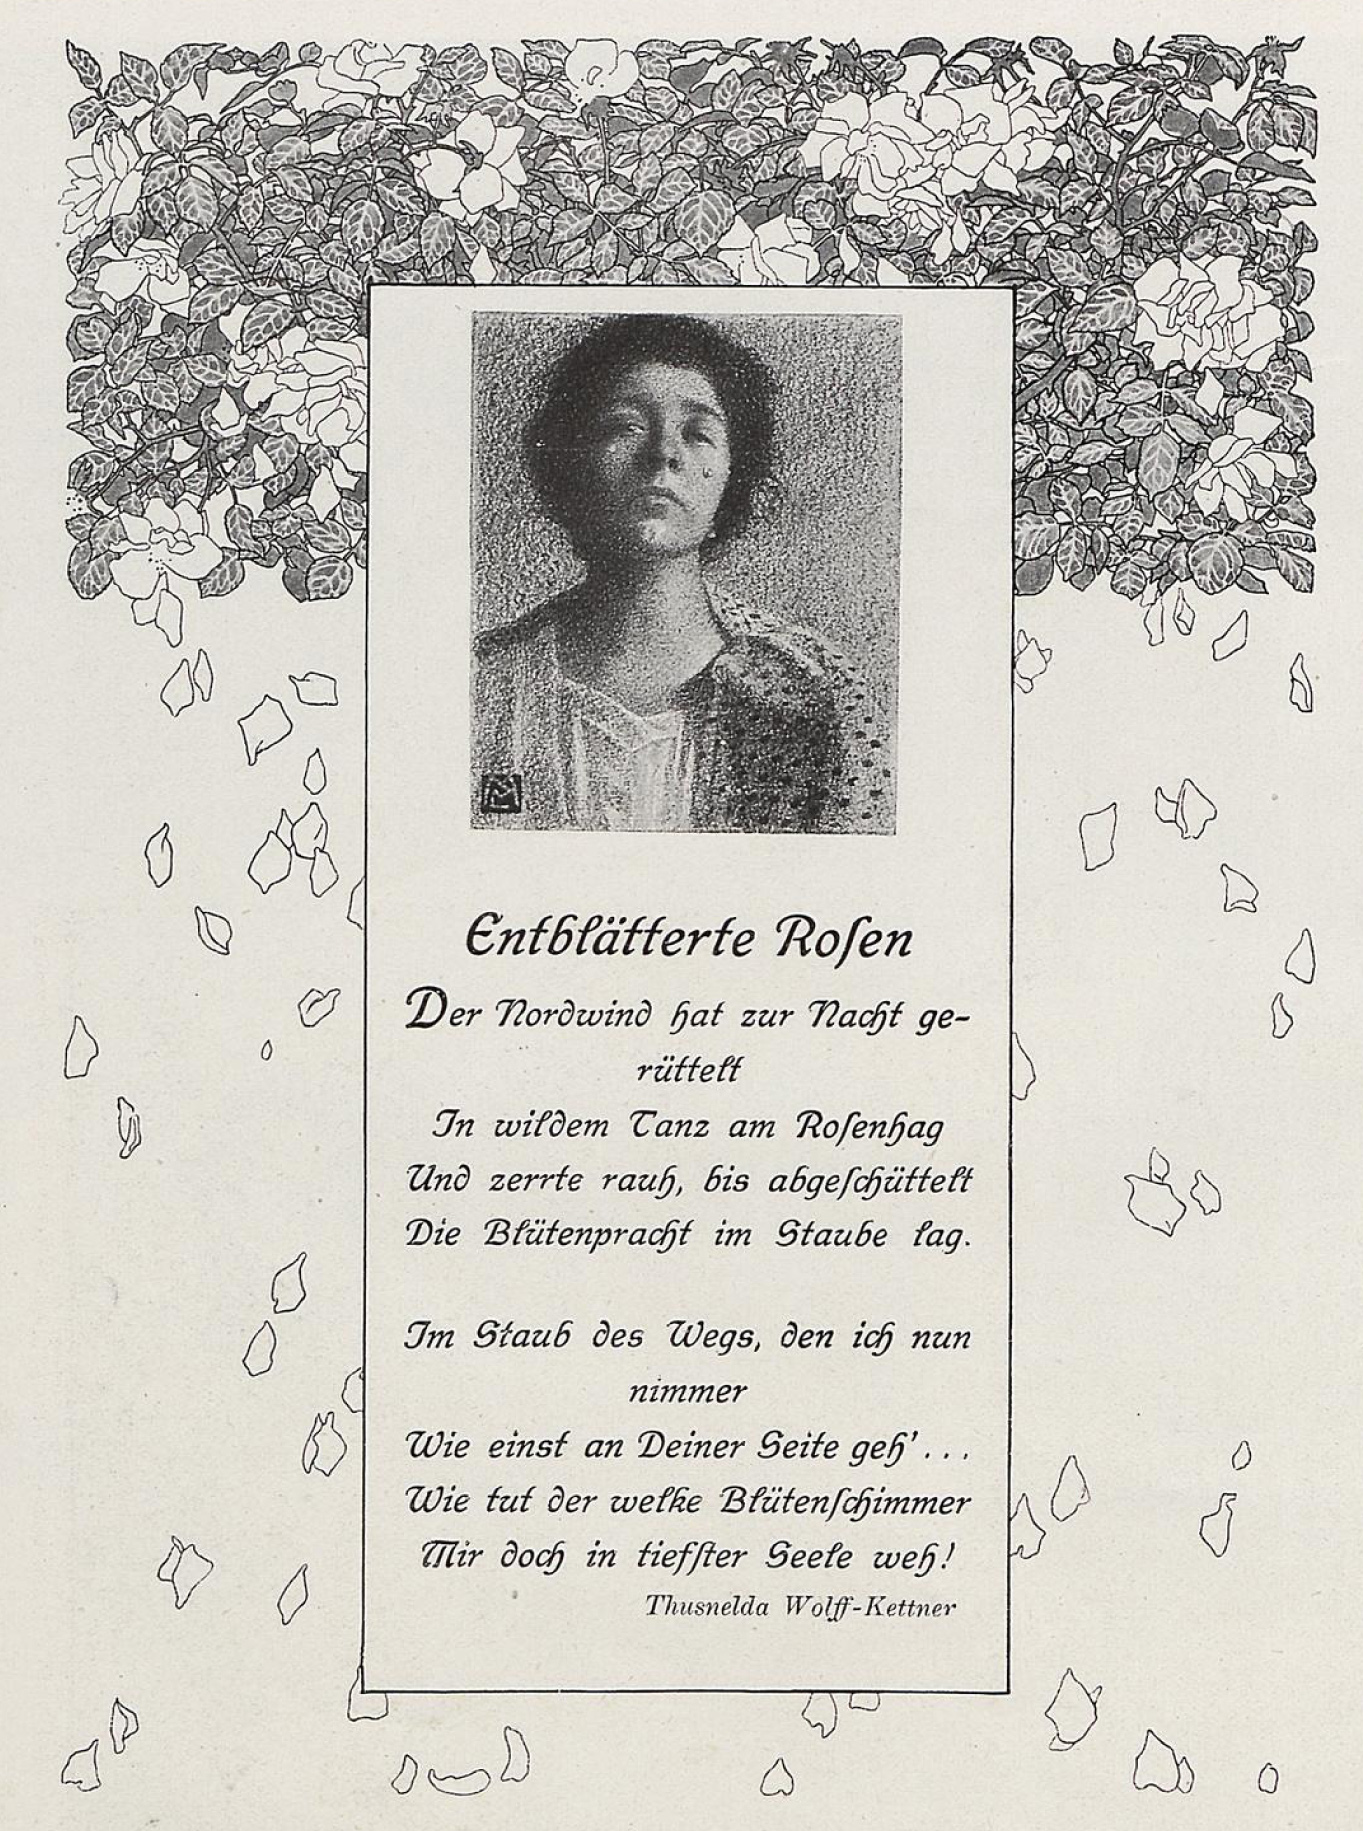 Entblätterte Roſen
Der Nordwind hat zur Nacht ge-
rüttelt
In wildem Tanz am Roſenhag
Und zerrte rauh, bis abgeſchüttelt
Die Blütenpracht im Staube lag.
Im Staub des Wegs, den ich nun
nimmer
Wie einst an Deiner Seite geh'...
Wie tut der welke Blütenſchimmer
Mir doch in tiefſter Seele weh!
Thusnelda Wolff-Kettner